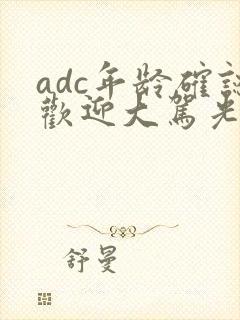 adc年龄確認
歡迎大駕光
舒曼